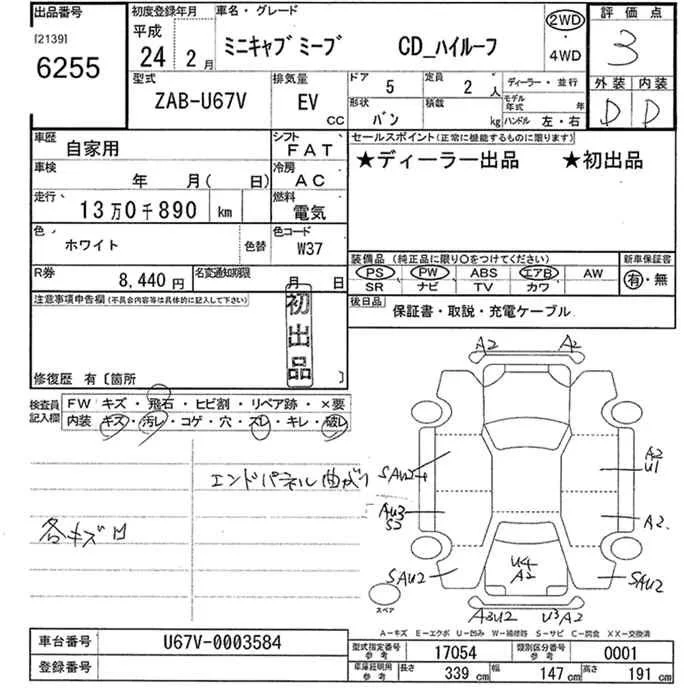 出品番号 初度登録年月 車名・グレード 評価点
[2139] 6255 平成 24 2月 ミニキャブ ミーブ CD_ハイルーフ 2WD・4WD 3
型式 排気量 ドア 5 定員 2人 ディーラー・並行 外装 内装
ZAB-U67V EV CC 形状 バン 積載 kg モデル年式 年 ハンドル 左・右 D D
車歴 自家用 シフト FAT セールスポイント(正常に機能するものに限ります)
車検 年 月( 日) 冷房 AC ★ディーラー出品 ★初出品
走行 13万0千890 km 燃料 電気
色 ホワイト 色替 色コード W37
装備品(純正品に限り○をつけてください) 新車保証書
PS PW ABS エアB AW 有・無
SR ナビ TV カワ
R券 8,440円 名変通知期限 月 日
後日品 保証書・取説・充電ケーブル
注意事項申告欄(不具合内容等は具体的に記入して下さい)
初出品
修復歴 有〔箇所 〕
検査員記入欄 FW キズ・飛石・ヒビ割・リペア跡・×要
内装 キズ・汚レ・コゲ・穴・スレ・キレ・破レ
エンドパネル曲がり
各キズ凹
A2 A2
SAU2
A2
U1
AU3
S3
A2
SAU2
U4
A2
SAU2
スペア
A3U2 U3A2
A-キズ E-エクボ U-凹み W-補修跡 S-サビ C-腐食 XX-交換済
車台番号 U67V-0003584
登録番号
型式指定番号 参考 17054 類別区分番号 参考 0001
車庫証明用 参考 長さ 339 cm 幅 147 cm 高さ 191 cm